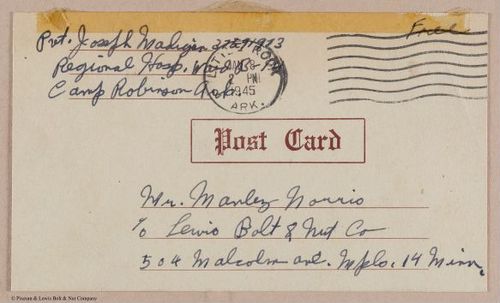 Free
Pvt. Joseph Madigan 37591973
Regional Hosp. Ward
Camp Robinson Ark.
LITTLE ROCK
2 PM
1945
ARK.
Post Card
Mr. Manley Norris
c/o Lewis Bolt & Nut Co
504 Malcolm ave. Mpls. 14 Minn.
© Pieces & Lewis Bolt & Nut Company